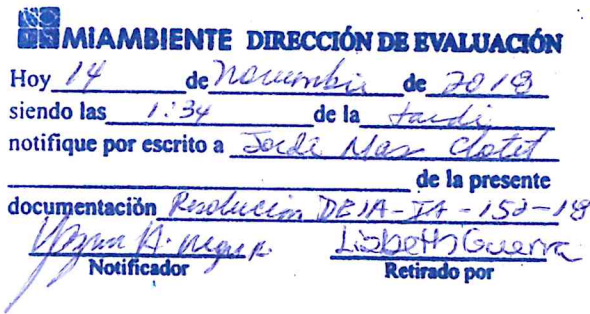 MIAMBIENTE DIRECCIÓN DE EVALUACIÓN
Hoy 14 de Noviembre de 2018
siendo las 1:34 de la tarde
notifique por escrito a Jorde Mas Clotet
de la presente
documentación Resolución DEIA-IA-152-18
Notificador
Lisbeth Guerra
Retirado por